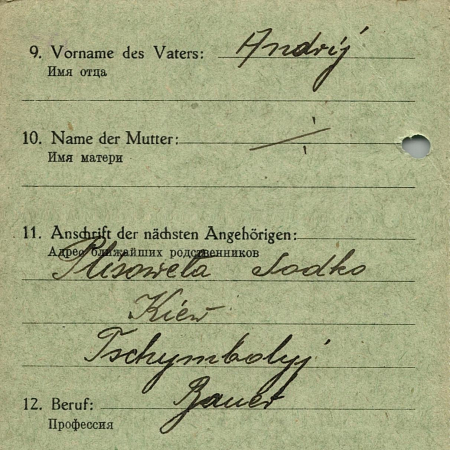 9. Vorname des Vaters: Andrij
Имя отца
10. Name der Mutter: ·/·
Имя матери
11. Anschrift der nächsten Angehörigen:
Адрес ближайших родственников
Plisoweta Sodko
Kiew
Tschymbolyj
12. Beruf: Bauer
Профессия